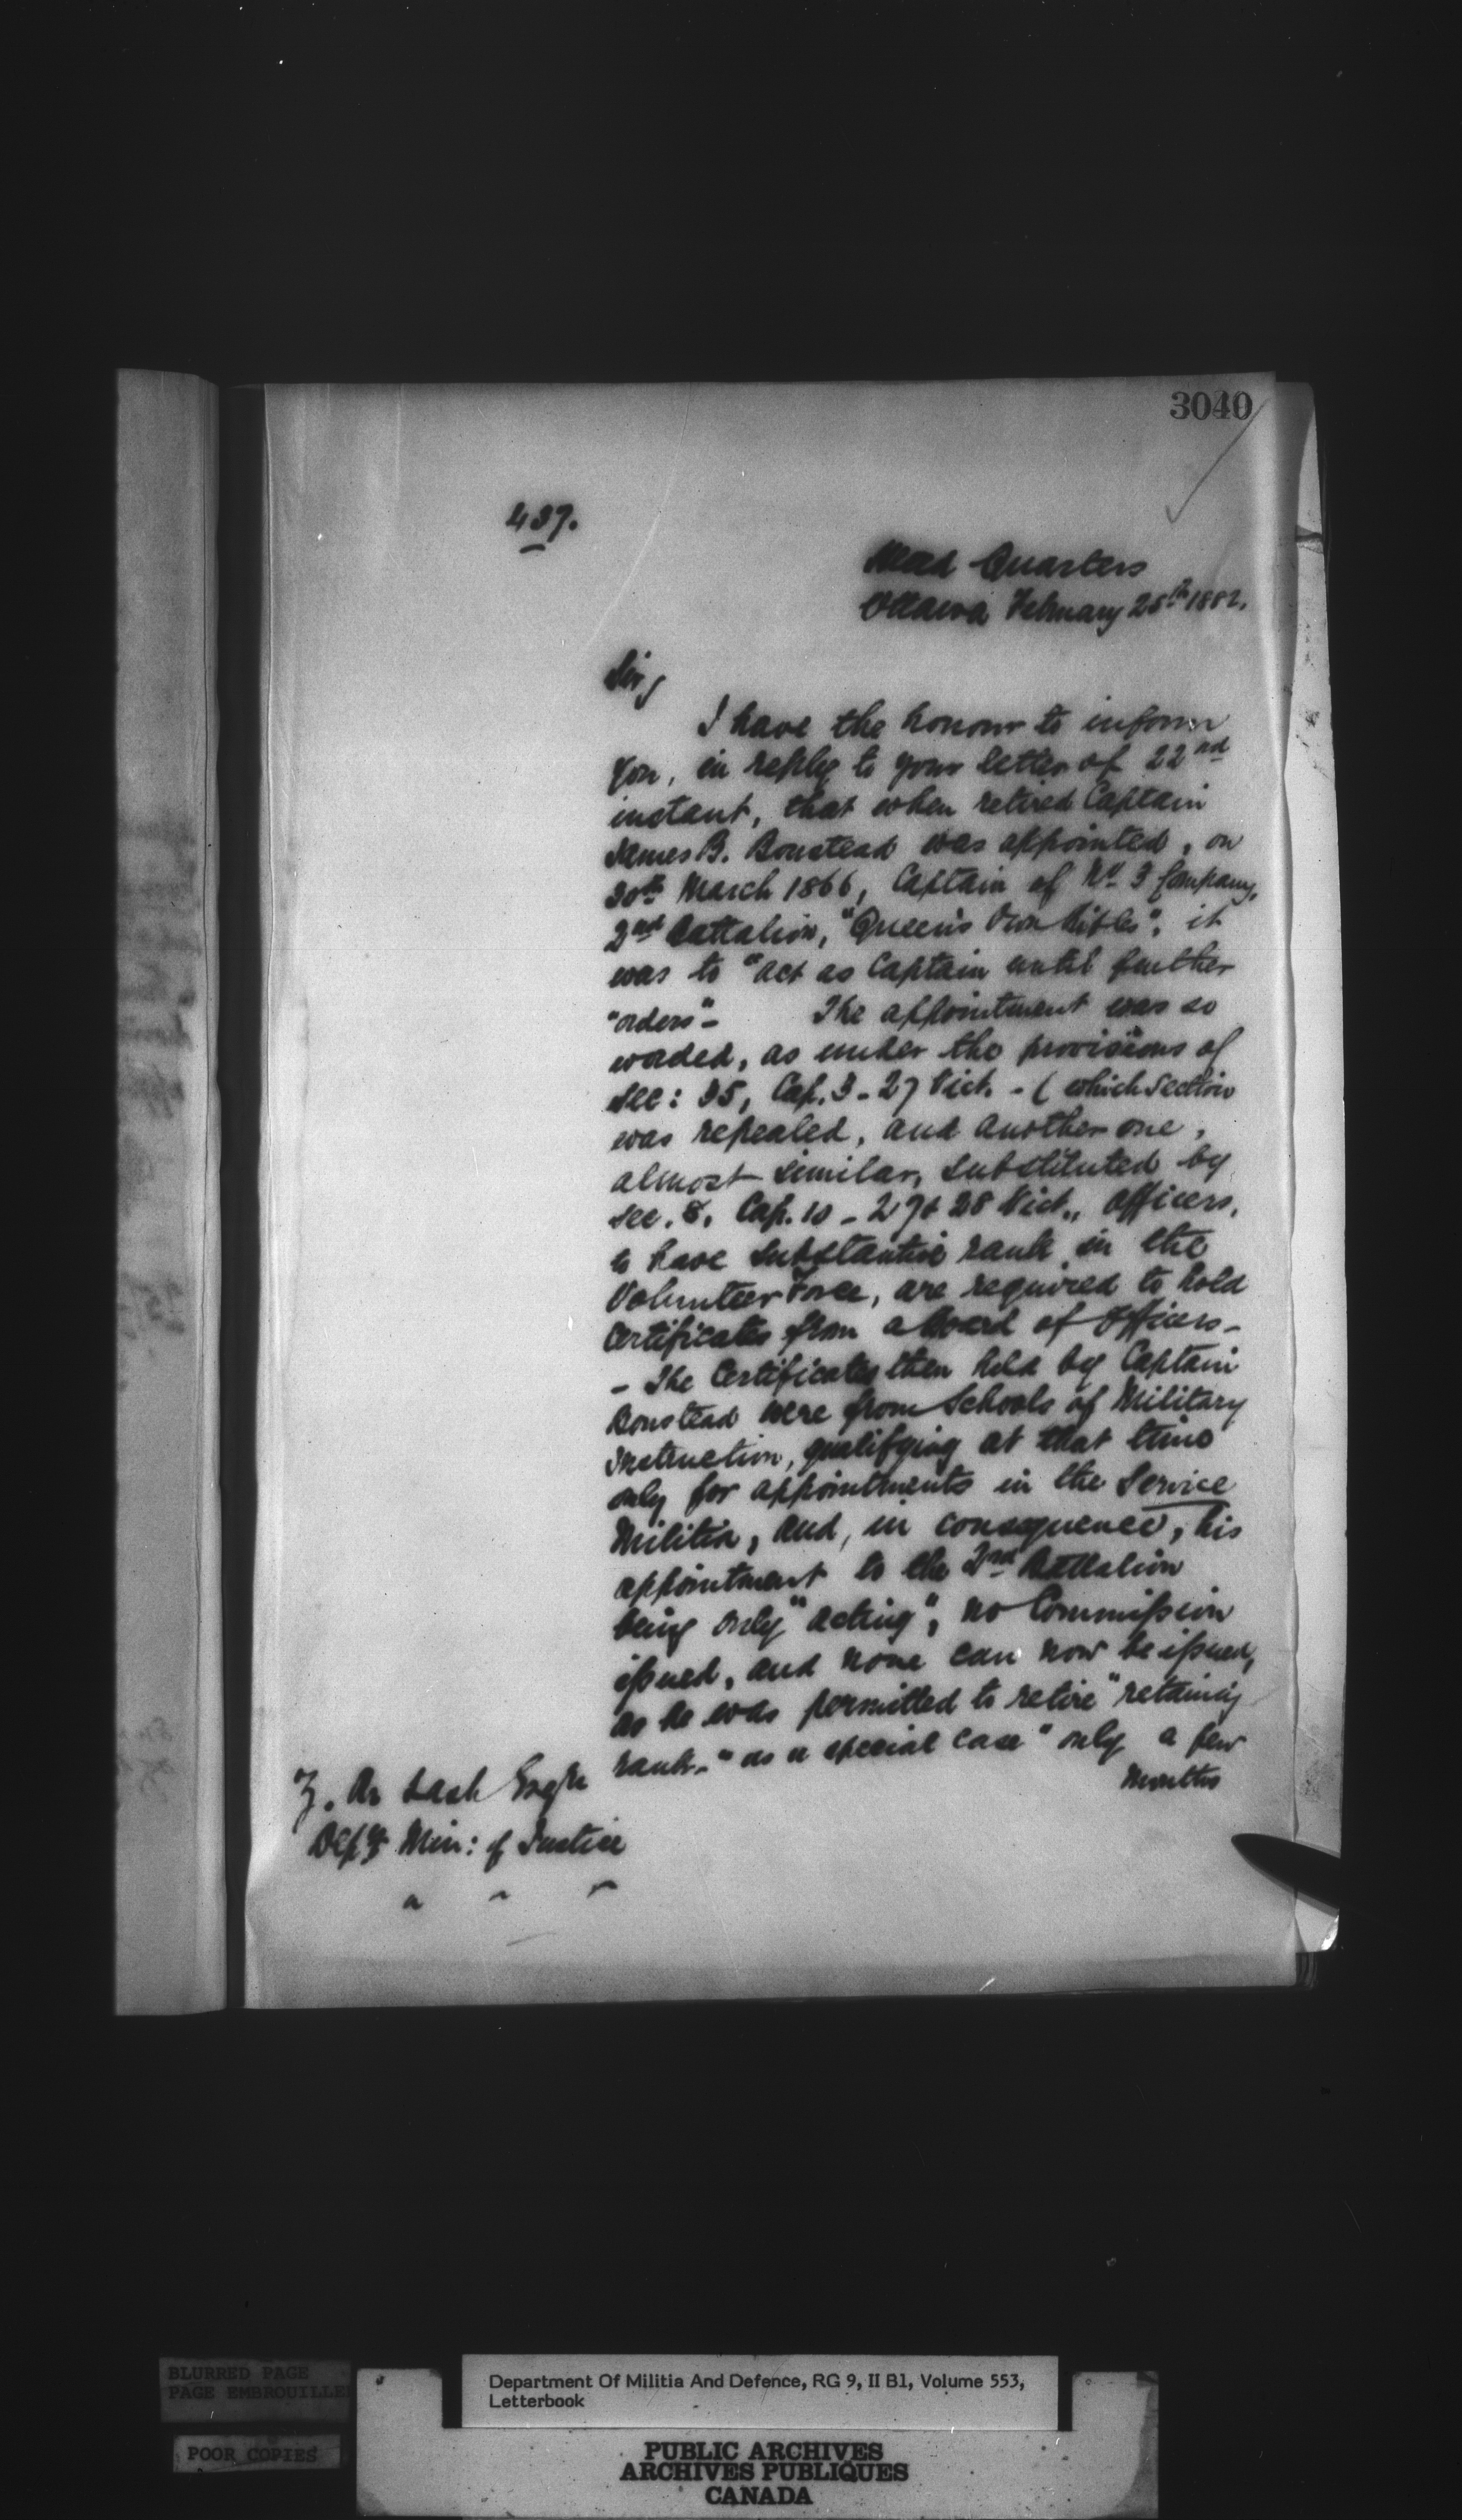 3040
437.
Head Quarters
Ottawa February 25th 1882.
Sir,
I have the honour to inform
you, in reply to your letter of 22nd
instant, that when retired Captain
James B. Boustead was appointed, on
30th March 1866, Captain of No 3 Company,
2nd Battalion, "Queen's Own Rifles", it
was to "act as Captain until further
"orders"- The appointment was so
worded, as under the provisions of
Sec: 35, Cap. 3 - 27 Vict. - (which Section
was repealed, and another one,
almost similar, substituted by
Sec. 8, Cap. 10 - 27 & 28 Vict., officers,
to have substantive rank in the
Volunteer Force, are required to hold
Certificates from a Board of Officers -
- The Certificates then held by Captain
Boustead were from Schools of Military
Instruction, qualifying at that time
only for appointments in the Service
Militia, and, in consequence, his
appointment to the 2nd Battalion
being only "acting", no Commission
issued, and none can now be issued,
as he was permitted to retire "retaining
rank - "as a special case" only a few
months
Z. A. Lash Esqre
Depy Min: of Justice
" " "
BLURRED PAGE
PAGE EMBROUILLE
POOR COPIES
Department Of Militia And Defence, RG 9, II B1, Volume 553,
Letterbook
PUBLIC ARCHIVES
ARCHIVES PUBLIQUES
CANADA